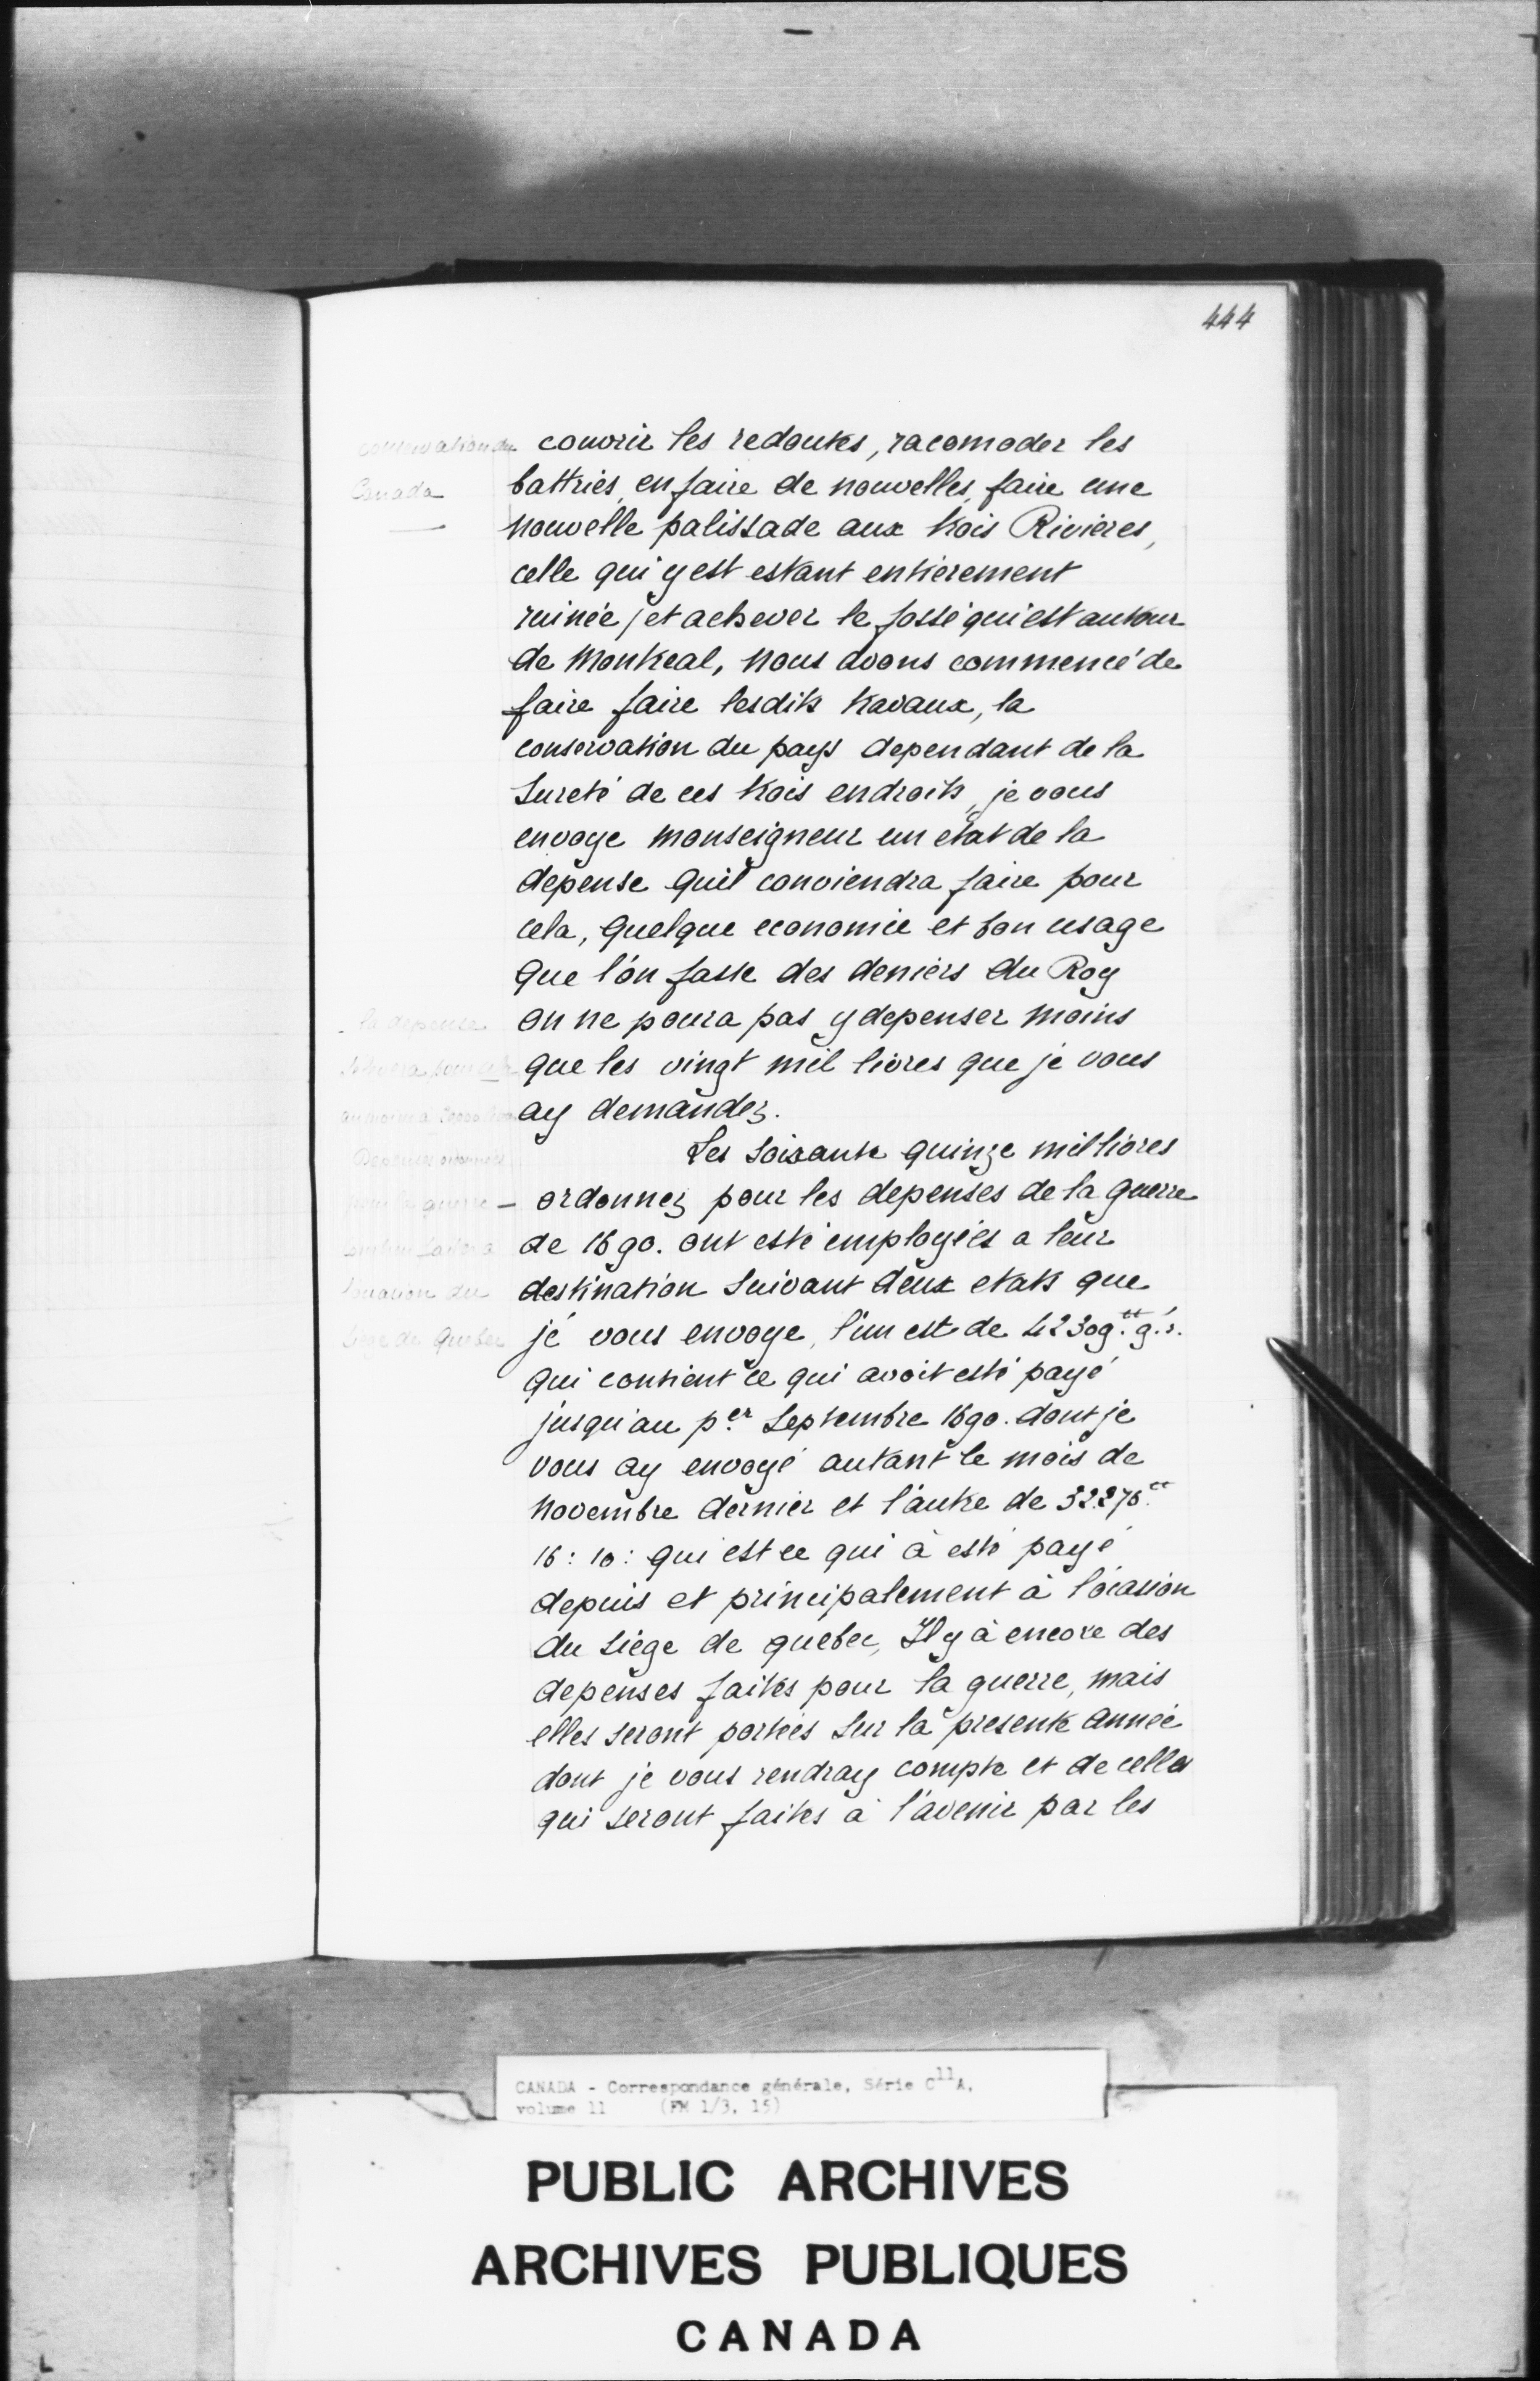 444
conservation du
Canada
couvrir les redoutes, racomoder les
battries, en faire de nouvelles, faire une
nouvelle palissade aux trois Rivieres,
celle qui y est estant entierement
ruinée, et achever le fossé qui est autour
de Montreal, nous avons commencé de
faire faire lesdits travaux, la
conservation du pays dependant de la
Sureté de ces trois endroits, je vous
envoye Monseigneur un etat de la
depense quil conviendra faire pour
cela, quelque economie et bon usage
que l'on fasse des deniers du Roy
la depense
on ne poura pas y depenser moins
que les vingt mil livres que je vous
ay demandez.
Depenses ordonnées
Les soixante quinze mil livres
pour la guerre –
ordonnez pour les depenses de la guerre
de 1690. ont esté employées a leur
destination Suivant deux etats que
siege de Quebec
je vous envoye, l'un est de 42309.tt 9.s.
qui contient ce qui avoit esté payé
jusqu'au p.er Septembre 1690. dont je
vous ay envoyé autant le mois de
Novembre dernier et l'autre de 32276.tt
16: 10: qui est ce qui à esté payé
depuis et principalement à l'ocasion
du siege de quebec, Il y à encore des
depenses faites pour la guerre, mais
elles seront portées sur la presente année
dont je vous rendray compte et de celles
qui seront faites à l'avenir par les
CANADA - Correspondance générale, Série C11A,
volume 11 (FM 1/3, 15)
PUBLIC ARCHIVES
ARCHIVES PUBLIQUES
CANADA